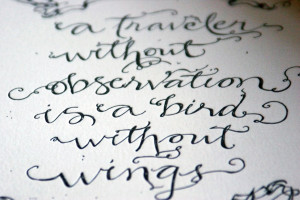 a traveler
without
observation
is a bird
without
wings